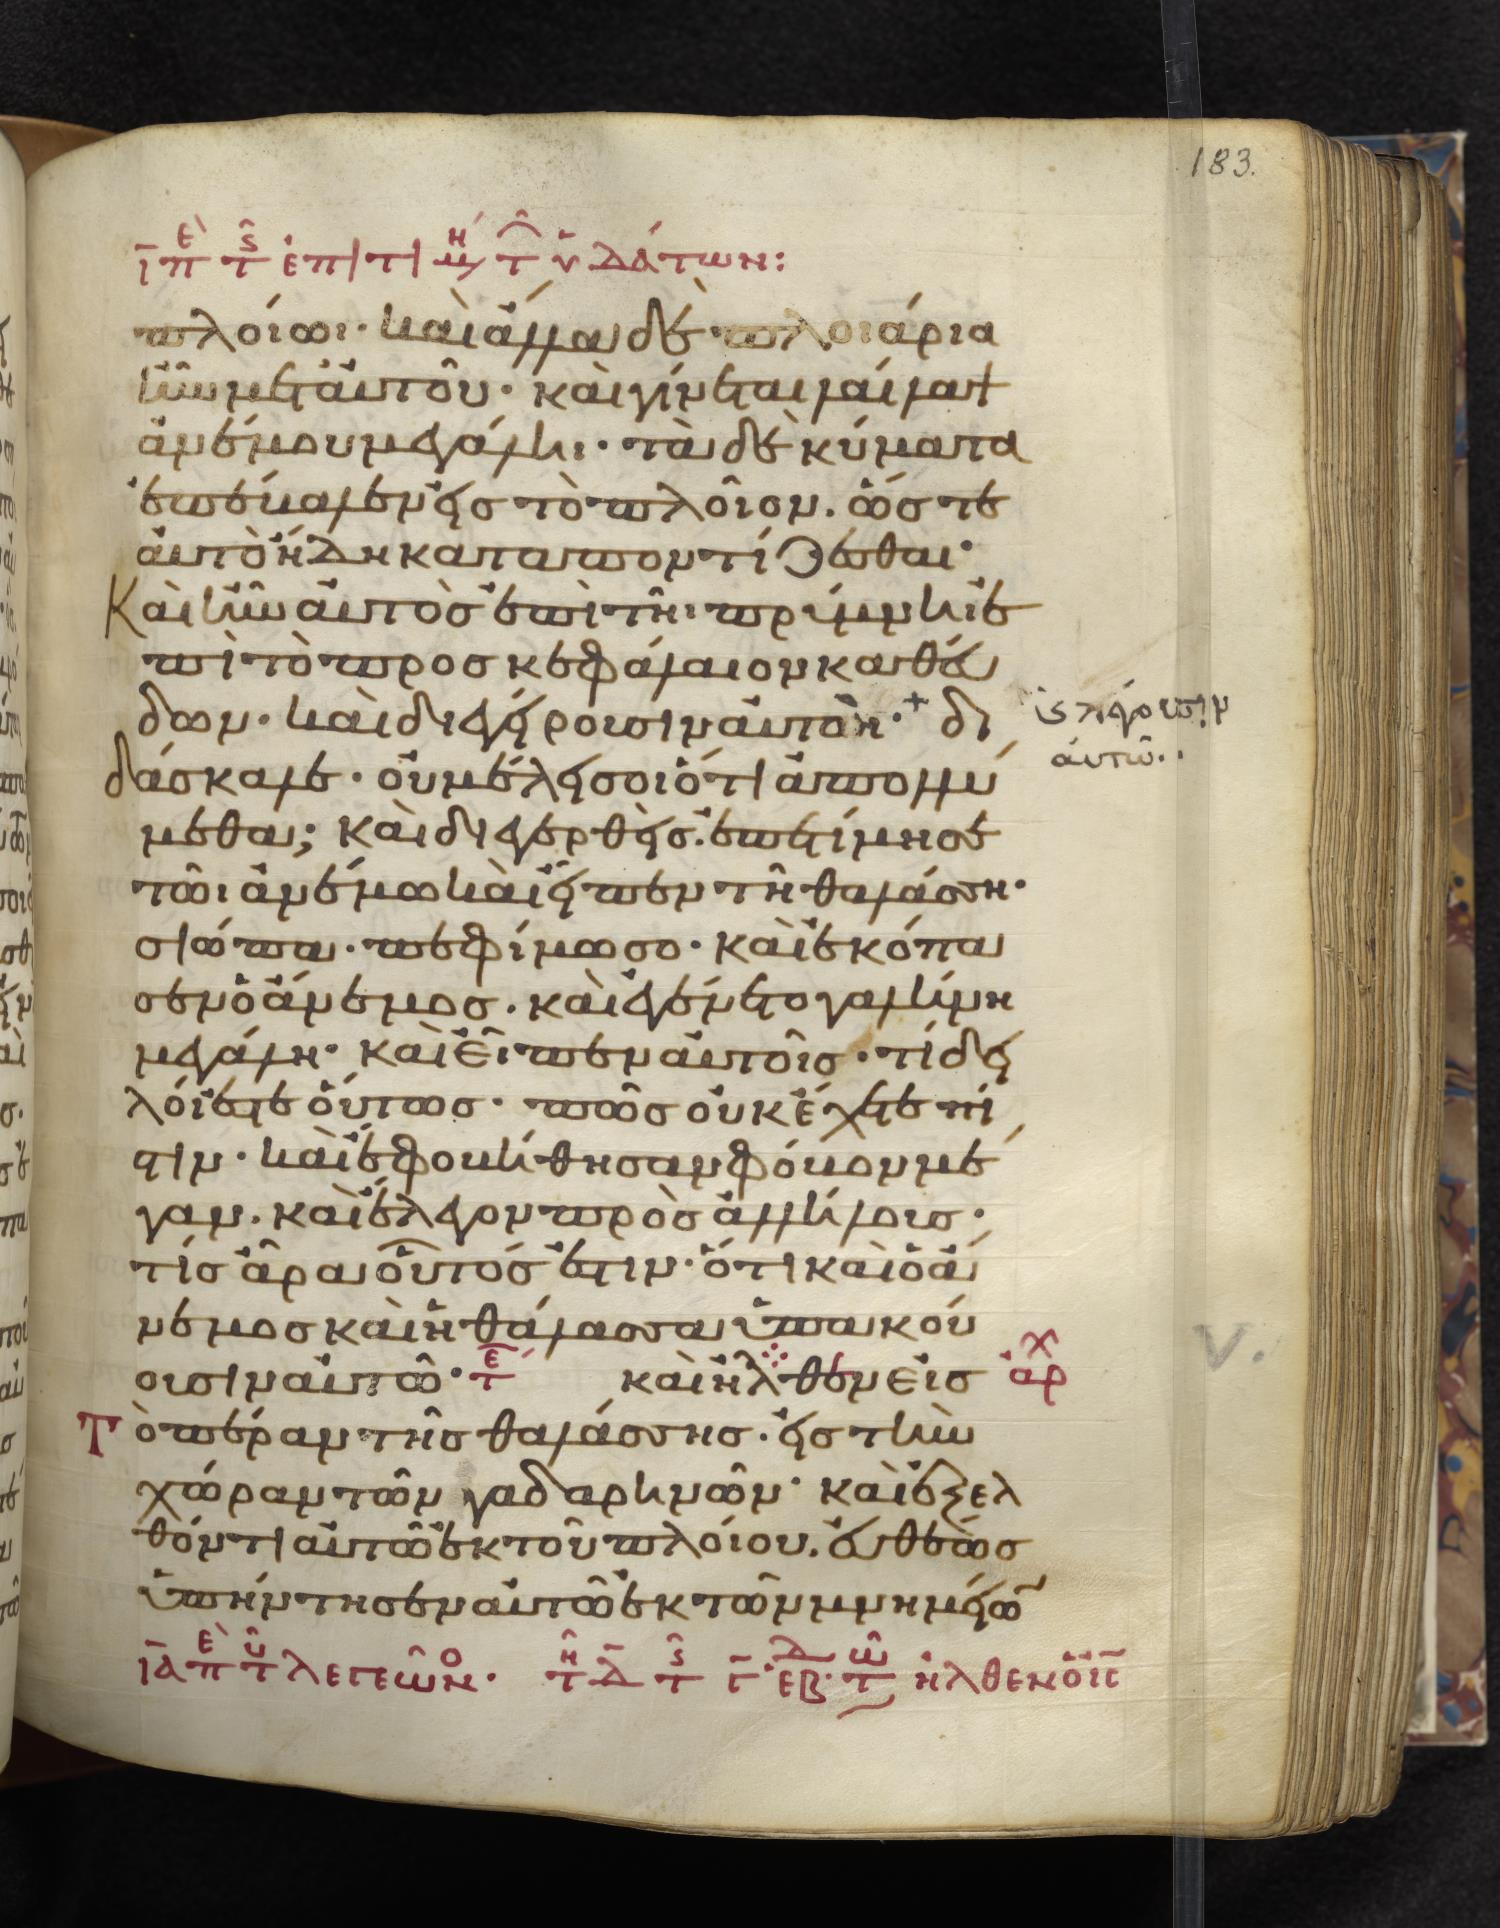 183.
ἐπιτιμ τ ὑδάτων:
πλοίωι· καὶ ἄλλα δὲ πλοιάρια
ἦν μετ αὐτοῦ· καὶ γίνεται λαίλαψ
ἀνέμου μεγάλη· τὰ δὲ κύματα
ἐπέβαλεν εἰς τὸ πλοῖον. ὥστε
αὐτὸ ἤδη καταποντίζεσθαι·
Καὶ ἦν αὐτὸς ἐπὶ τῆι πρύμνηι ἐ
πὶ τὸ προσκεφάλαιον καθεύ
δων· καὶ διεγείρουσιν αὐτόν·+ δι
κ λέγουσιν
αὐτῶ··
δάσκαλε· οὐ μέλει σοι ὅτι ἀπολλύ
μεθα; καὶ διεγερθεὶς· ἐπετίμησε
τῶι ἀνέμω καὶ εἶπεν τῆ θαλάσση·
σιώπα· πεφίμωσο· καὶ ἐκόπα
σεν ὁ ἄνεμος. καὶ ἐγένετο γαλήνη
μεγάλη· καὶ εἶπεν αὐτοῖς· τί δει
λοί ἐστε οὕτως· πῶς οὐκ ἔχετε πί
στιν· καὶ ἐφοβήθησαν φόβον μέ
γαν. καὶ ἔλεγον πρὸς ἀλλήλους·
τίς ἄρα οὗτός ἐστιν· ὅτι καὶ ὁ ἄ
νεμος καὶ ἡ θάλασσα ὑπακού
ουσιν αὐτῶ· τε καὶ ἦλθεν εἰς ἀρχ
Τὸ πέραν τῆς θαλάσσης· εἰς τὴν
χώραν τῶν γαδαρηνῶν· καὶ ἐξελ
θόντι αὐτῶ ἐκ τοῦ πλοίου. εὐθέως
ὑπήντησεν αὐτῶ ἐκ τῶν μνημείω
ια π τ λεγεῶν· τ δ τ εβδ τ ἦλθεν ὁ ις